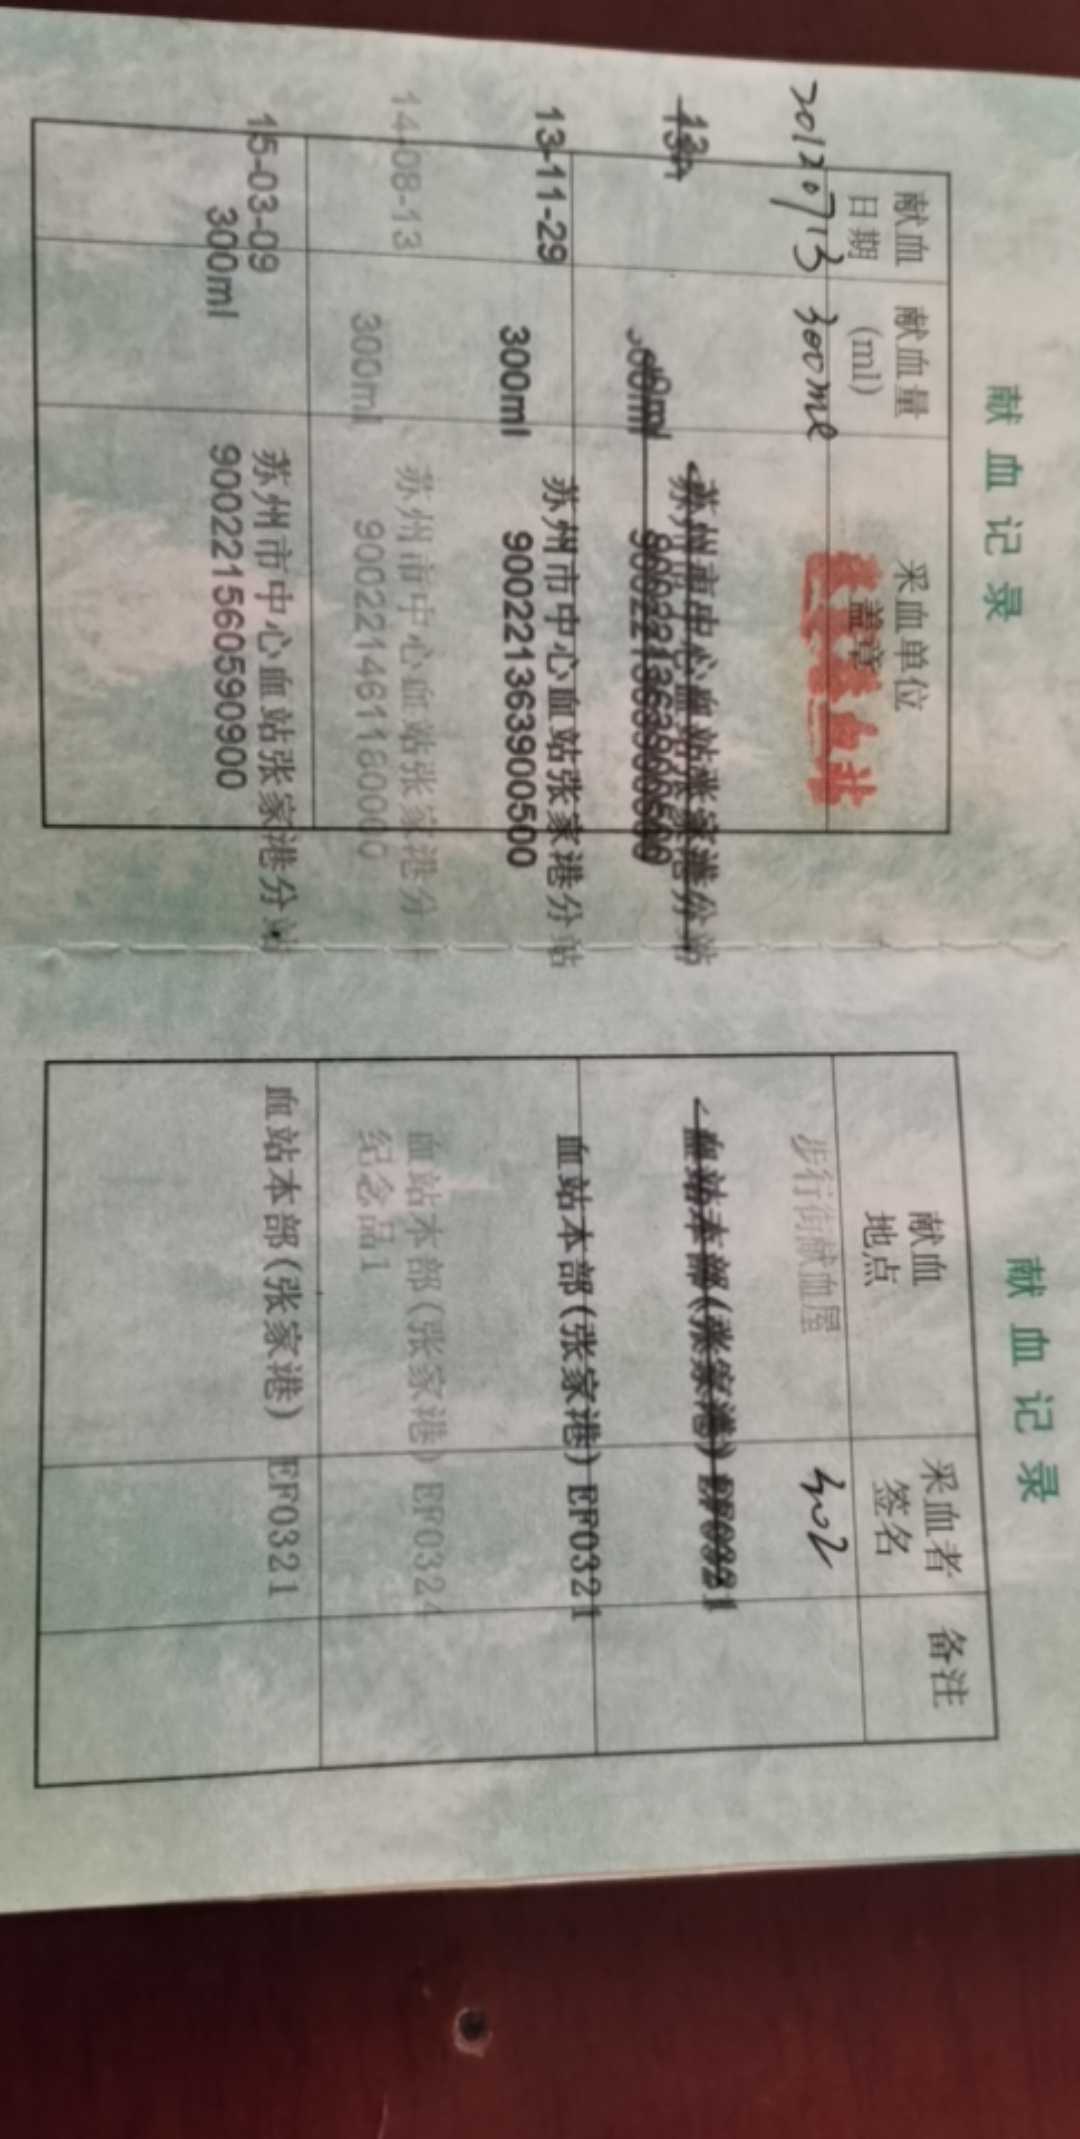 献血记录
献血日期
献血量(ml)
采血单位盖章
20120713 300ml
血站
13-11-29
300ml
苏州市中心血站张家港分站
900221363900500
14-08-13
300ml
苏州市中心血站张家港分
900221461180000
15-03-09
300ml
苏州市中心血站张家港分站
900221560590900
献血记录
献血地点
采血者签名
备注
步行街献血屋
302
血站本部(张家港)
EF0321
血站本部(张家港)
EF0324
纪念品1
血站本部(张家港)
EF0321